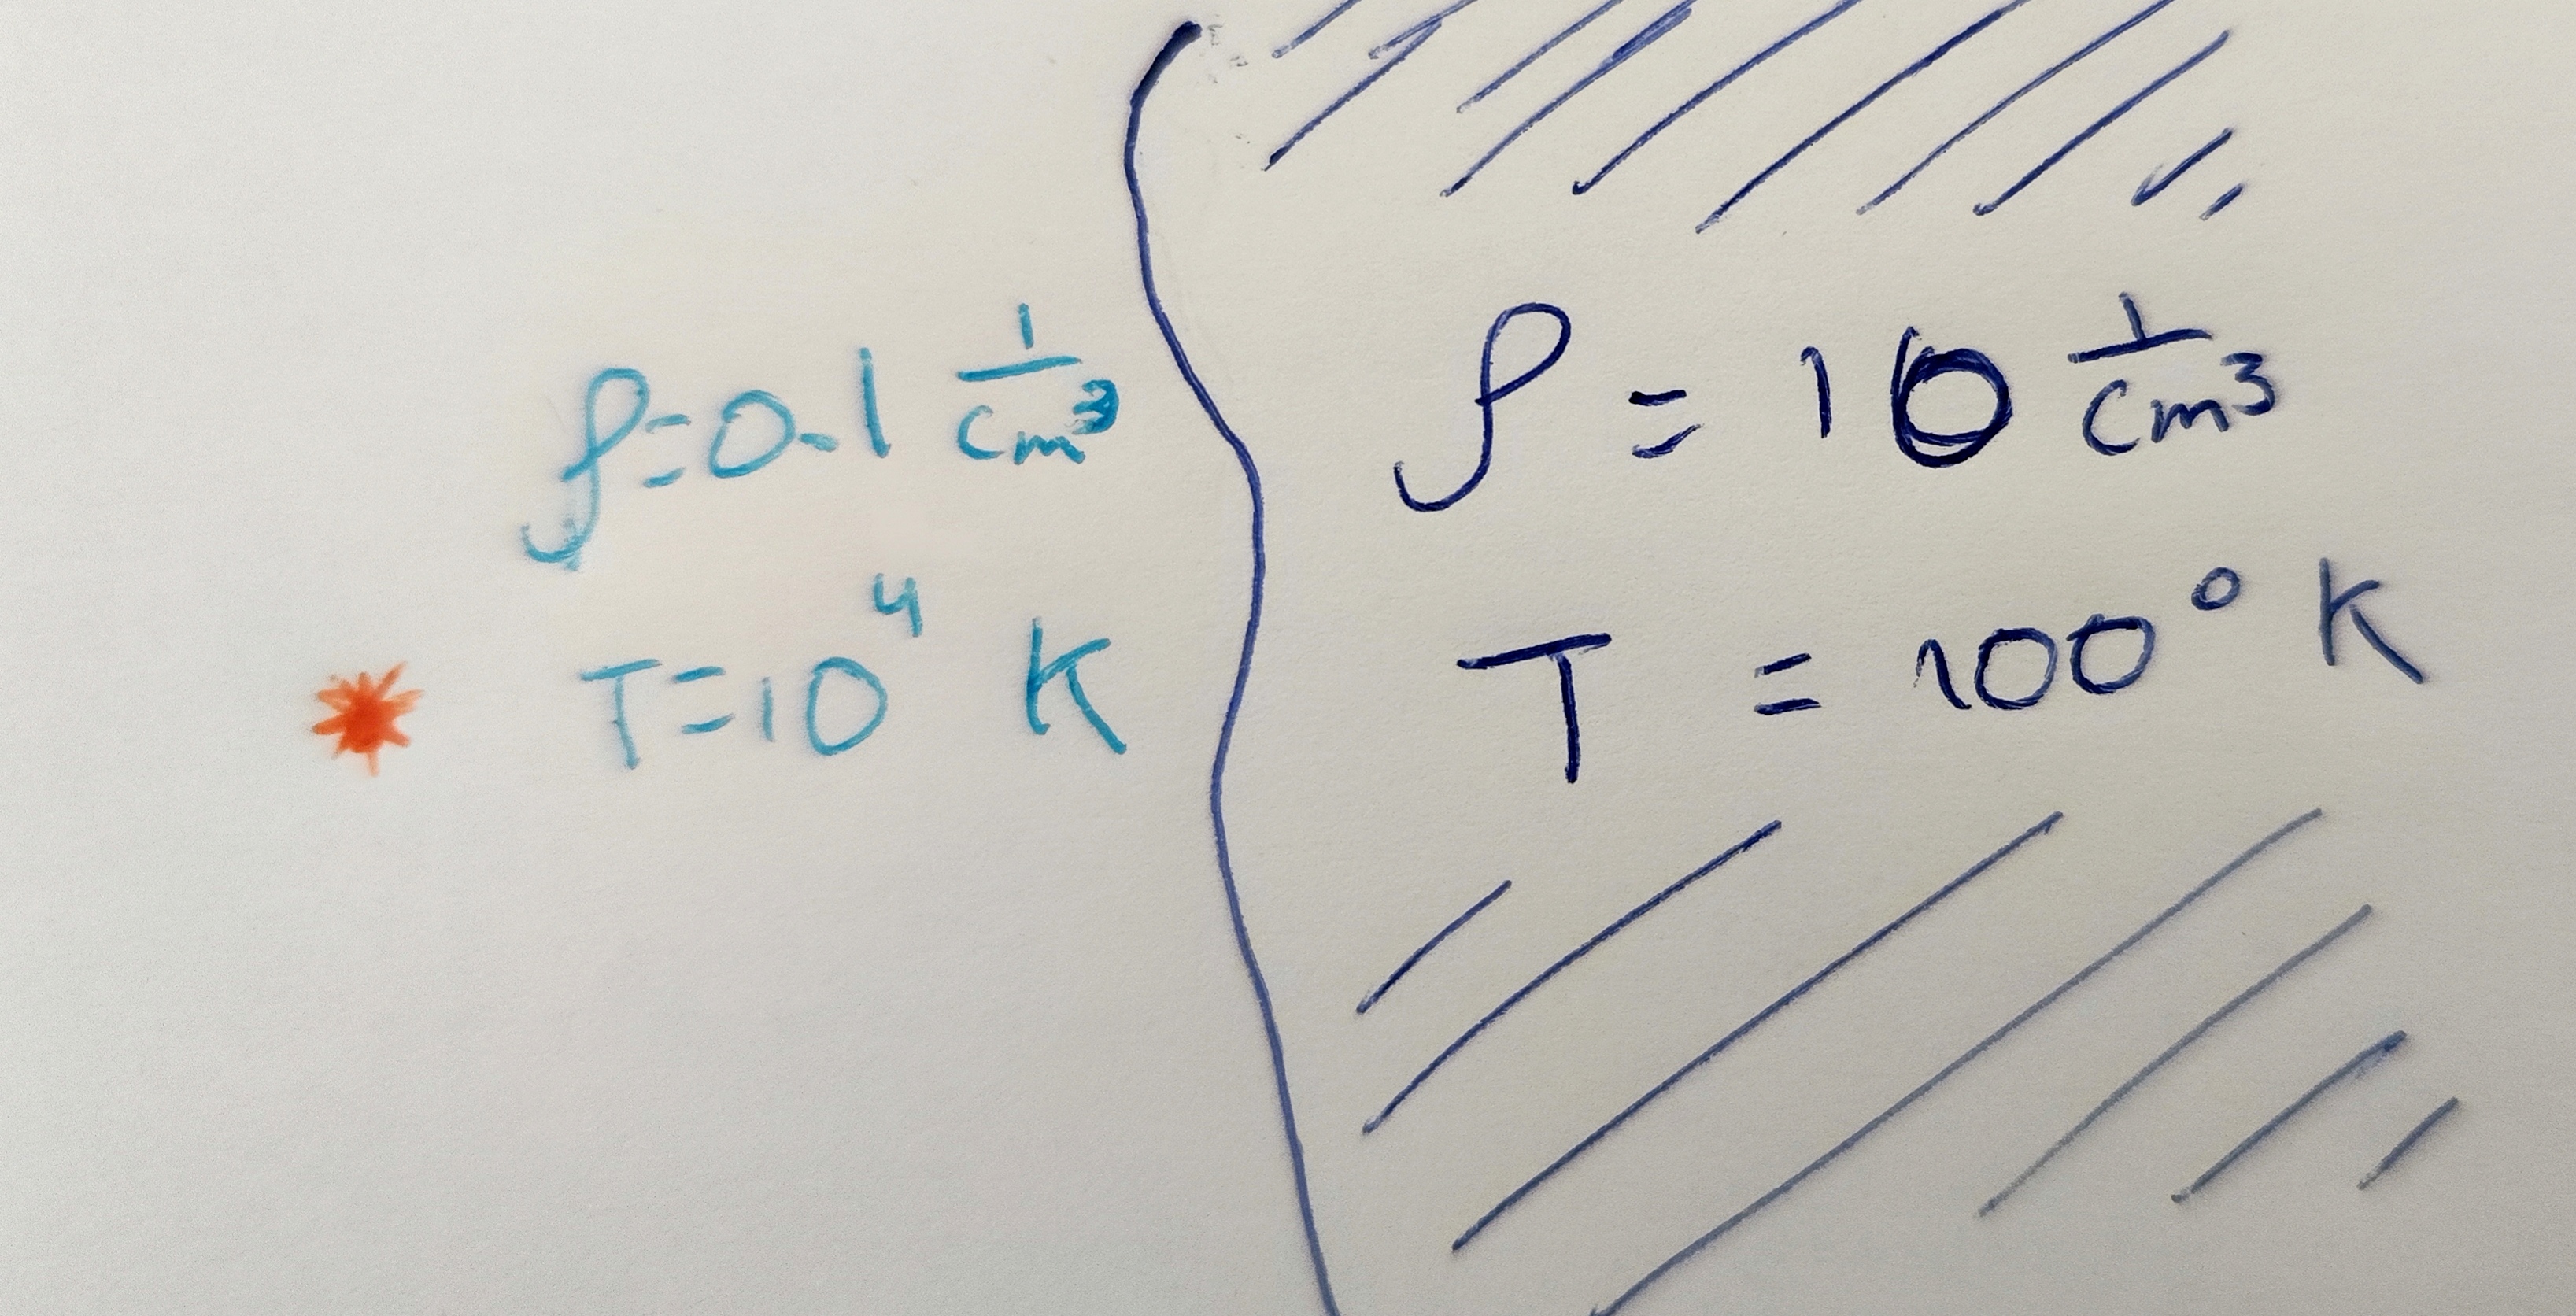 ρ=0.1 1/cm³
T=10⁴ K
ρ = 10 1/cm³
T = 100° K